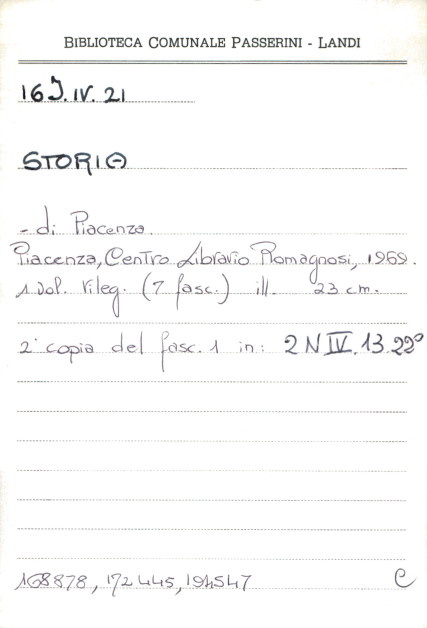 BIBLIOTECA COMUNALE PASSERINI - LANDI
16 J. IV. 21
STORIA
- di Piacenza.
Piacenza, Centro Librario Romagnosi, 1969.
1 vol. rileg. (7 fasc.) ill. 23 cm.
2ª copia del fasc. 1 in: 2 N IV. 13.22°
168878, 172445, 194547 C